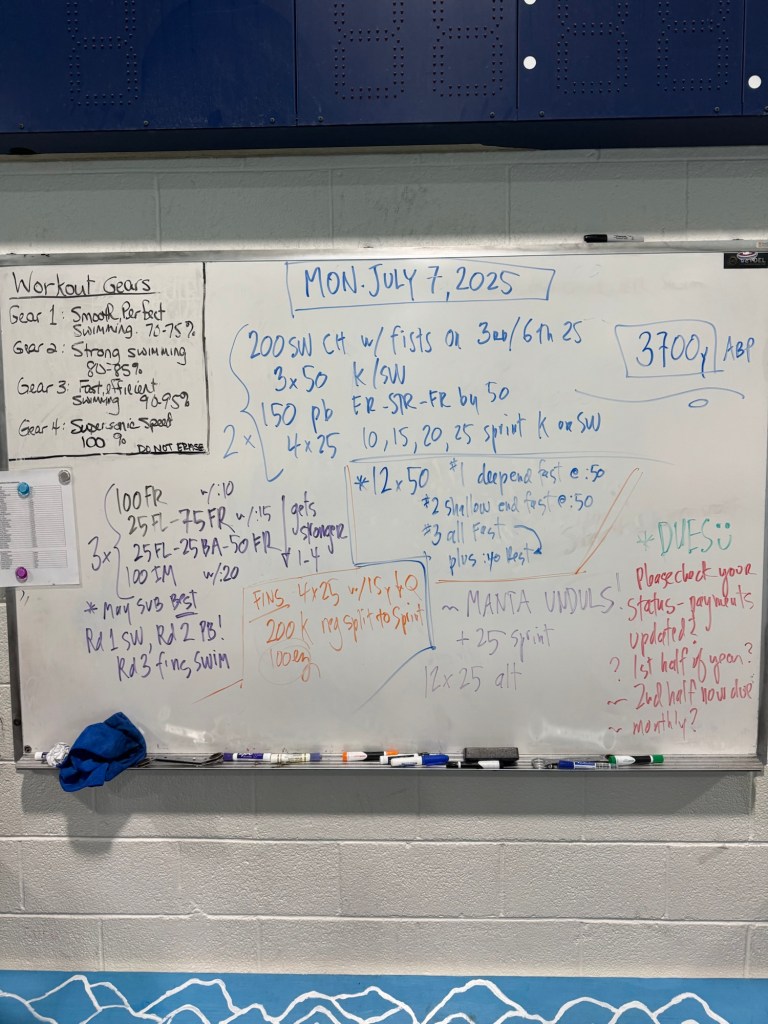 Workout Gears
Gear 1: Smooth, Perfect
Swimming. 70-75%
Gear 2: Strong swimming
80-85%
Gear 3: Fast, efficient
swimming 90-95%
Gear 4: Supersonic Speed
100 %
DO NOT ERASE
MON. JULY 7, 2025
200 SW CH w/ fists on 3RD/6th 25
3x50 K/SW
150 pb FR-STR-FR by 50
2x 4x25 10, 15, 20, 25 sprint K on SW
3700y ABP
*12x50 #1 deep end fast @ :50
#2 shallow end fast @ :50
#3 all Fast
plus :40 Rest
100 FR w/:10
25FL-75FR w/:15
3x 25FL-25BA-50FR
100 IM w/:20
gets
stronger
1-4
* May sub Best
Rd 1 SW, Rd 2 PB!
Rd 3 fins swim
FINS 4x25 w/15
200 K reg split to Sprint
100 ez
~ MANTA UNDULS!
+ 25 sprint
12x25 alt
* DUES
Please check your
status - payments
updated?
? 1st half of year?
~ 2nd half now due
~ monthly?